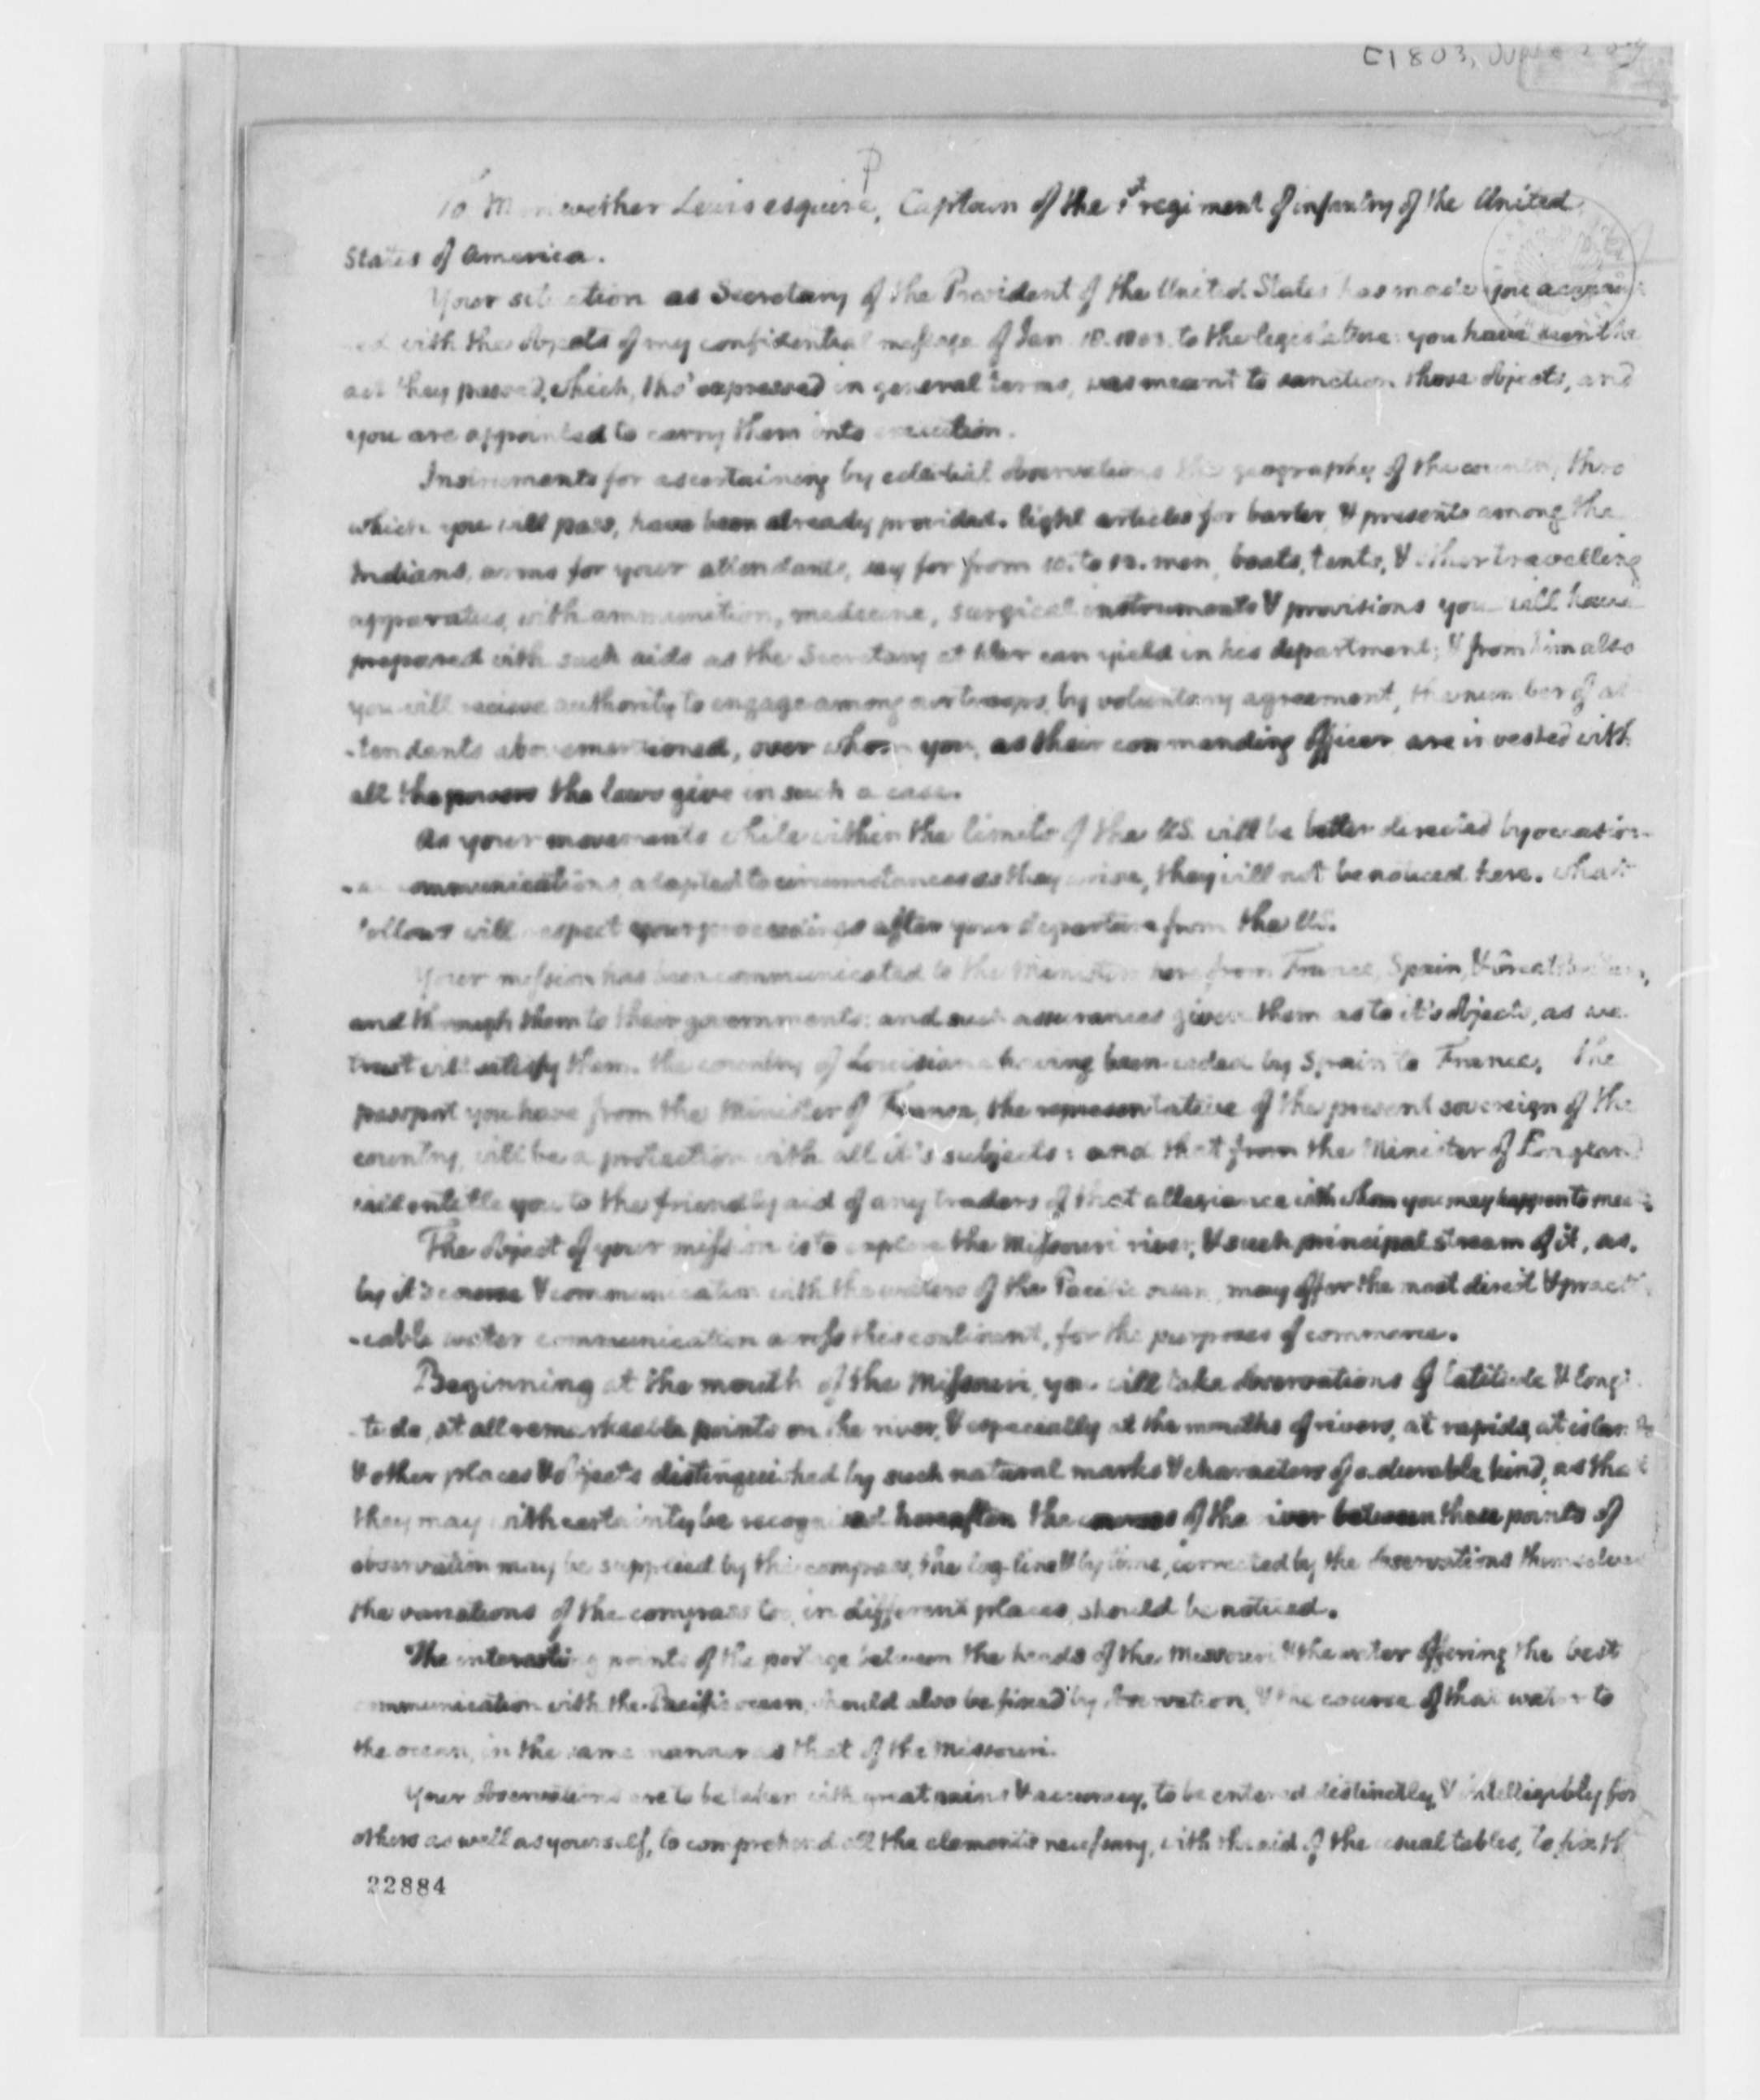 To Meriwether Lewis esquire, Captain of the 1st regiment of infantry of the United
States of America.
Your situation as Secretary of the President of the United States has made you acquaint
-ed with the objects of my confidential message of Jan. 18. 1803. to the legislature: you have seen the
act they passed, which, tho' expressed in general terms, was meant to sanction those objects, and
you are appointed to carry them into execution.
Instruments for ascertaining by celestial observations the geography of the country thro'
which you will pass, have been already provided. light articles for barter, & presents among the
Indians, arms for your attendants, say for from 10. to 12. men, boats, tents, & other travelling
apparatus, with ammunition, medicine, surgical instruments & provisions you will have
prepared with such aids as the Secretary at War can yield in his department; & from him also
you will recieve authority to engage among our troops, by voluntary agreement, the number of at
-tendants abovementioned, over whom you, as their commanding officer are invested with
all the powers the laws give in such a case.
As your movements while within the limits of the US. will be better directed by occasion-
-al communications, adapted to circumstances as they arise, they will not be noticed here. what
follows will respect your proceedings after your departure from the US.
Your mission has been communicated to the Ministers here from France, Spain, & Great Britain,
and through them to their governments: and such assurances given them as to it's objects, as we
trust will satisfy them. the country of Louisiana having been ceded by Spain to France, the
passport you have from the Minister of France, the representative of the present sovereign of the
country, will be a protection with all it's subjects: and that from the Minister of England
will entitle you to the friendly aid of any traders of that allegiance with whom you may happen to meet.
The object of your mission is to explore the Missouri river, & such principal stream of it, as,
by it's course & communication with the waters of the Pacific ocean, may offer the most direct & practi
-cable water communication across this continent, for the purposes of commerce.
Beginning at the mouth of the Missouri, you will take observations of latitude & longi
-tude, at all remarkeable points on the river, & especially at the mouths of rivers, at rapids, at islands
& other places & objects distinguished by such natural marks & characters of a durable kind, as that
they may with certainty be recognised hereafter. the courses of the river between these points of
observation may be supplied by the compass, the log-line & by time, corrected by the observations themselves
the variations of the compass too, in different places, should be noticed.
The interesting points of the portage between the heads of the Missouri & the water offering the best
communication with the Pacific ocean, should also be fixed by observation, & the course of that water to
the ocean, in the same manner as that of the Missouri.
Your observations are to be taken with great pains & accuracy, to be entered distinctly, & intelligibly for
others as well as yourself, to comprehend all the elements necessary, with the aid of the usual tables, to fix th
22884